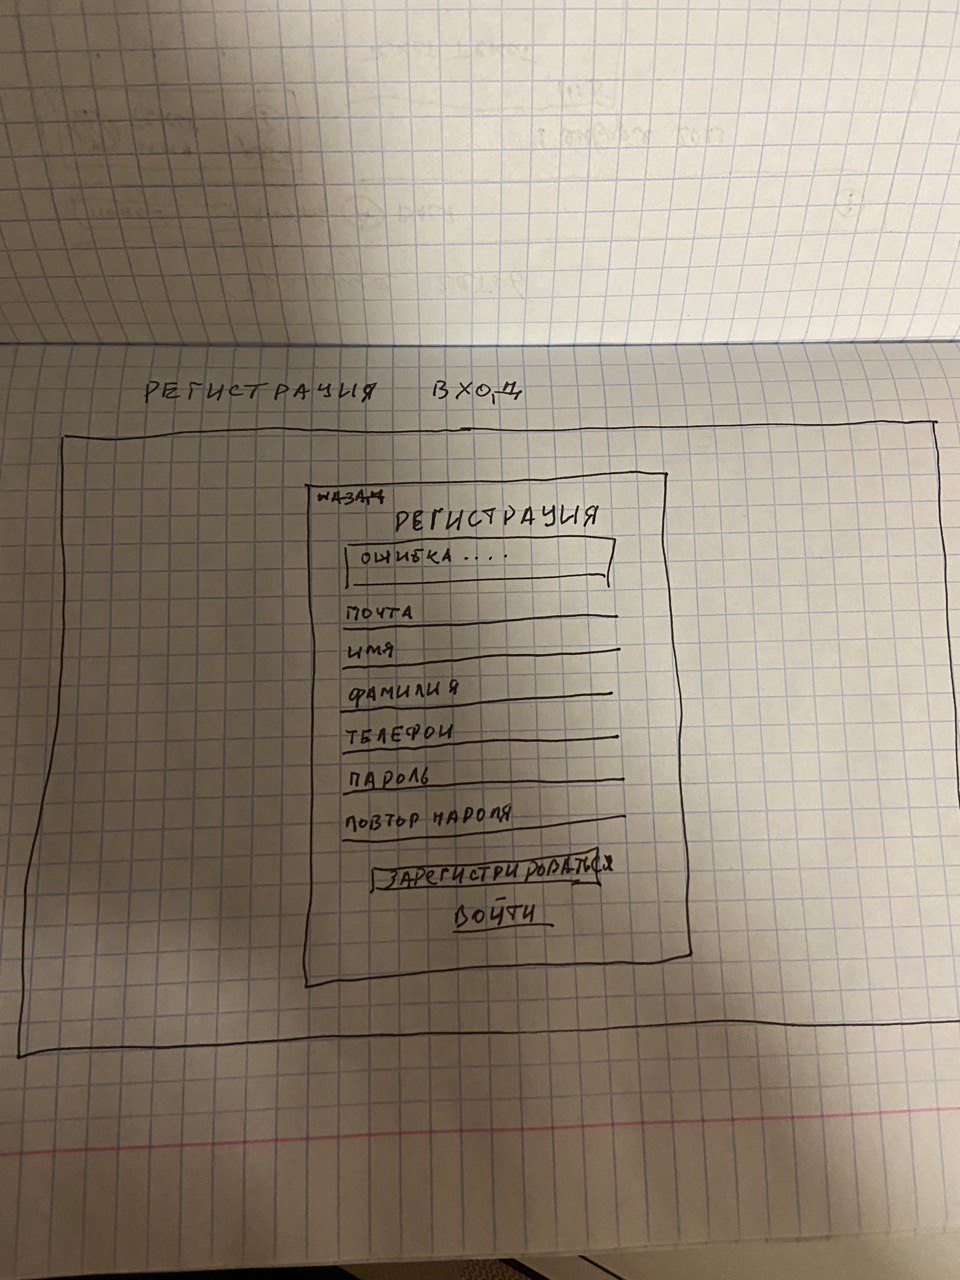 РЕГИСТРАЦИЯ ВХОД
НАЗАД
РЕГИСТРАЦИЯ
ОШИБКА ....
ПОЧТА
ИМЯ
ФАМИЛИЯ
ТЕЛЕФОН
ПАРОЛЬ
ПОВТОР ПАРОЛЯ
ЗАРЕГИСТРИРОВАТЬСЯ
ВОЙТИ